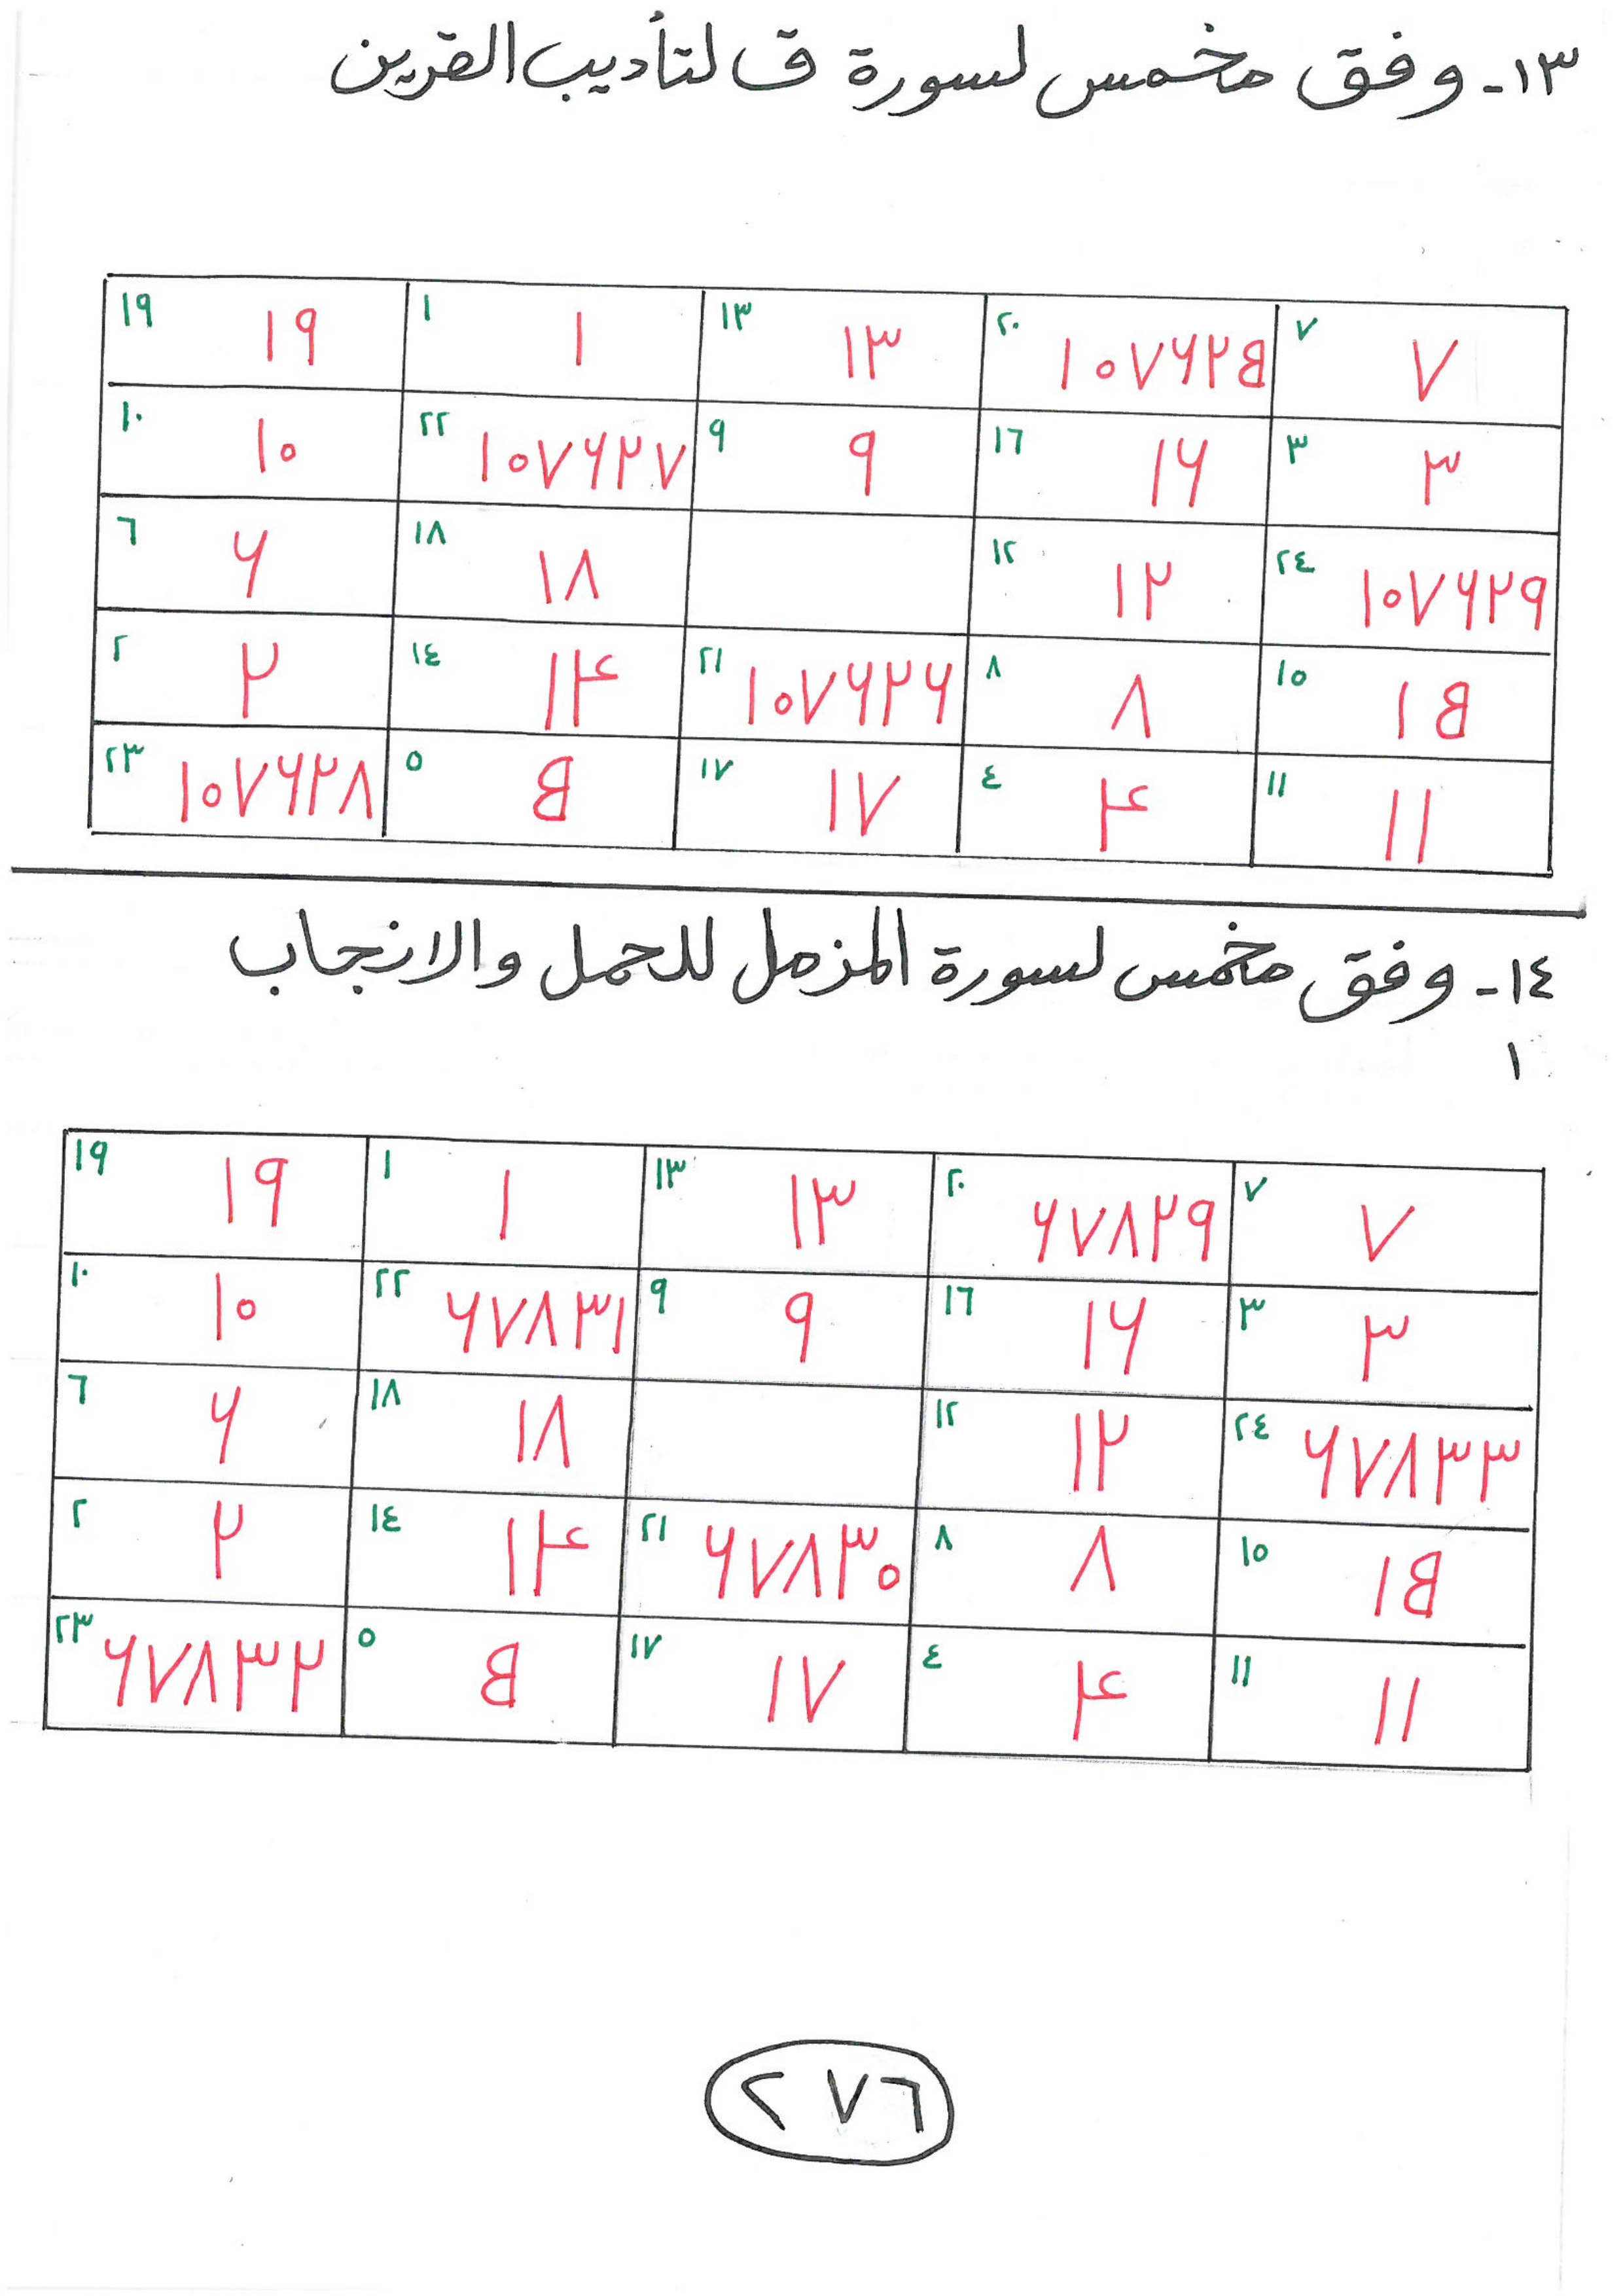 ١٣- وفق مخمس لسورة ق لتأديب القرين
١٩ ١٩ ١ ١ ١٣ ١٣ ٢٠ ١٠٧٦٢٥ ٧ ٧
١٠ ١٠ ٢٢ ١٠٧٦٢٧ ٩ ٩ ١٦ ١٦ ٣ ٣
٦ ٦ ١٨ ١٨ ١٢ ١٢ ٢٤ ١٠٧٦٢٩
٢ ٢ ١٤ ١٤ ٢١ ١٠٧٦٢٦ ٨ ٨ ١٥ ١٥
٢٣ ١٠٧٦٢٨ ٥ ٥ ١٧ ١٧ ٤ ٤ ١١ ١١
١٤- وفق مخمس لسورة المزمل للحمل والانجاب
١
١٩ ١٩ ١ ١ ١٣ ١٣ ٢٠ ٦٧٨٢٩ ٧ ٧
١٠ ١٠ ٢٢ ٦٧٨٣١ ٩ ٩ ١٦ ١٦ ٣ ٣
٦ ٦ ١٨ ١٨ ١٢ ١٢ ٢٤ ٦٧٨٣٣
٢ ٢ ١٤ ١٤ ٢١ ٦٧٨٣٠ ٨ ٨ ١٥ ١٥
٢٣ ٦٧٨٣٢ ٥ ٥ ١٧ ١٧ ٤ ٤ ١١ ١١
٢٧٦